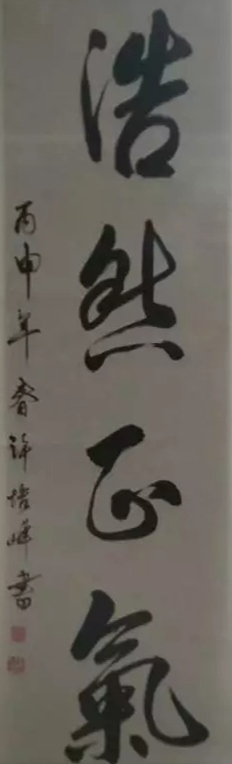 浩然正氣
丙申年春許増峰書